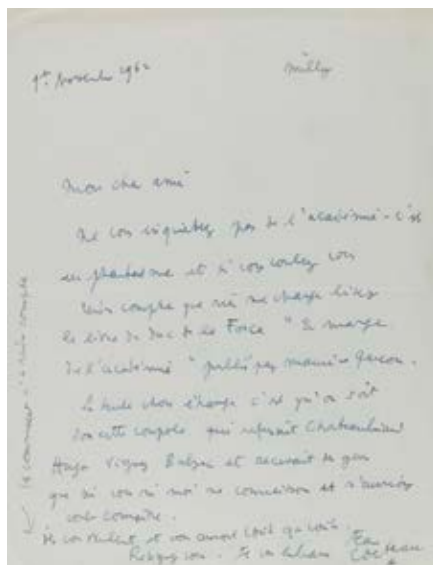 1er Novembre 1962
Milly
Mon cher ami
Ne vous inquiétez pas de l'académie - c'est
un phantasme et si vous voulez vous
rendre compte que rien ne change lisez
le livre du Duc de La Force "En marge
de l'académie" publié par Maurice Garçon.
La seule chose étrange c'est qu'on soit
sous cette coupole qui refusait Chateaubriand
Hugo Vigny Balzac et recevait des gens
que ni vous ni moi ne connaissons et n'aurions
voulu connaître.
Ils vous veulent et vous auront coûte que coûte.
Résignez vous. Je vous embrasse
Jean
Cocteau